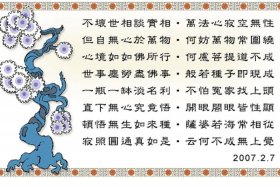 不壞世相談實相・萬法心寂空無性
但自無心於萬物・何妨萬物常圍繞
心境如如佛所行・何處菩提道不成
世事塵勞盡佛事・般若種子即現成
一瓶一缽淡名利・不怕冤家找上頭
直下無心究竟悟・開眼閉眼皆性顯
頓悟無生如來種・薩婆若海常相從
寂照圓通真如是・云何不成無上覺
2007.2.7